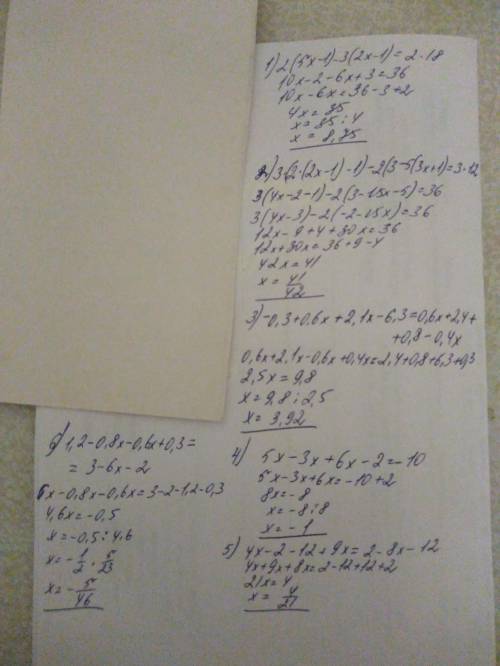 1) 2(5x-1)-3(2x-1)=2·18
10x-2-6x+3=36
10x-6x=36-3+2
4x=35
x=35:4
x=8,75
2) 3(2·(2x-1)-1)-2(3-5(3x+1)=3·12
3(4x-2-1)-2(3-15x-5)=36
3(4x-3)-2(-2-15x)=36
12x-9+4+30x=36
12x+30x=36+9-4
42x=41
x=41/42
3) -0,3+0,6x+2,1x-6,3=0,6x+2,4+
+0,8-0,4x
0,6x+2,1x-0,6x+0,4x=2,4+0,8+6,3+0,3
2,5x=9,8
x=9,8:2,5
x=3,92
4) 5x-3x+6x-2=-10
5x-3x+6x=-10+2
8x=-8
x=-8:8
x=-1
5) 4x-2-12+9x=2-8x-12
4x+9x+8x=2-12+12+2
21x=4
x=4/21
6) 1,2-0,8x-0,6x+0,3=
=3-6x-2
6x-0,8x-0,6x=3-2-1,2-0,3
4,6x=-0,5
x=-0,5:4,6
x=-1/2·5/23
x=-5/46